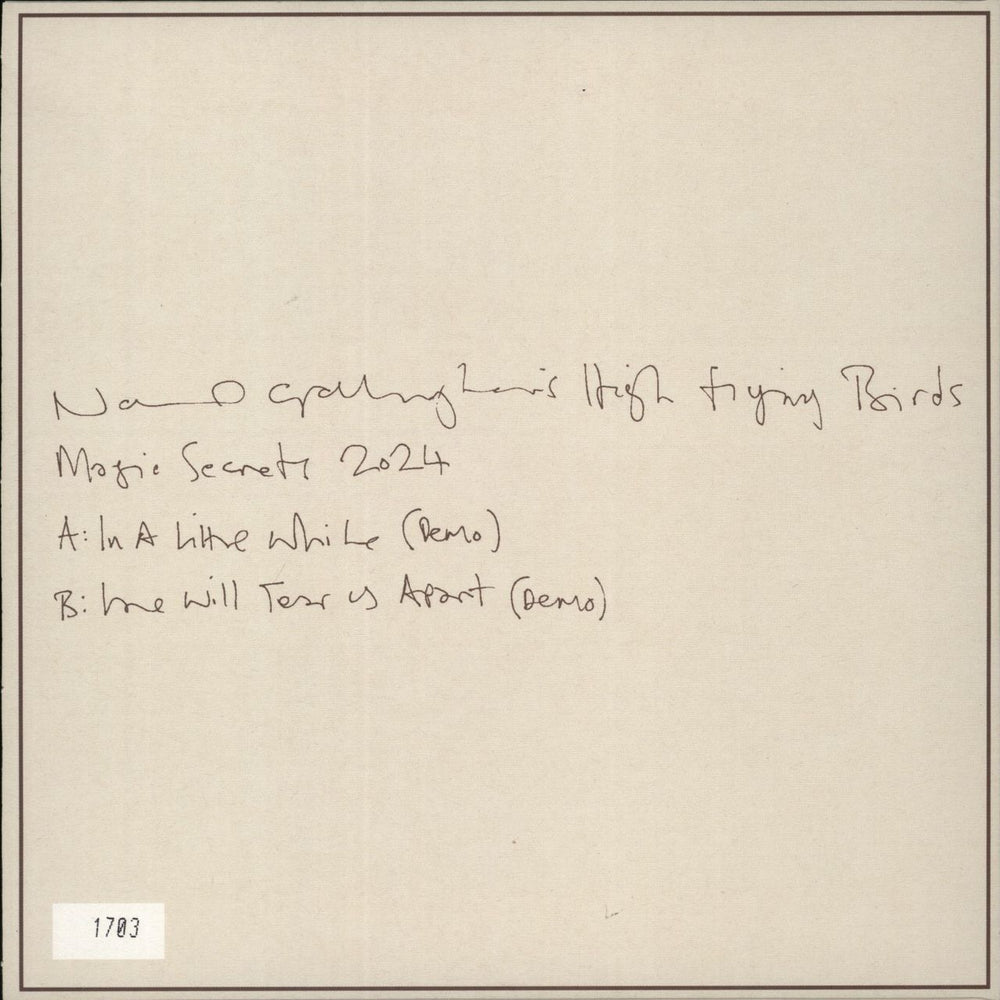 Noel Gallagher's High Flying Birds
Magic Secrets 2024
A: In A Little While (Demo)
B: Love Will Tear us Apart (Demo)
1703